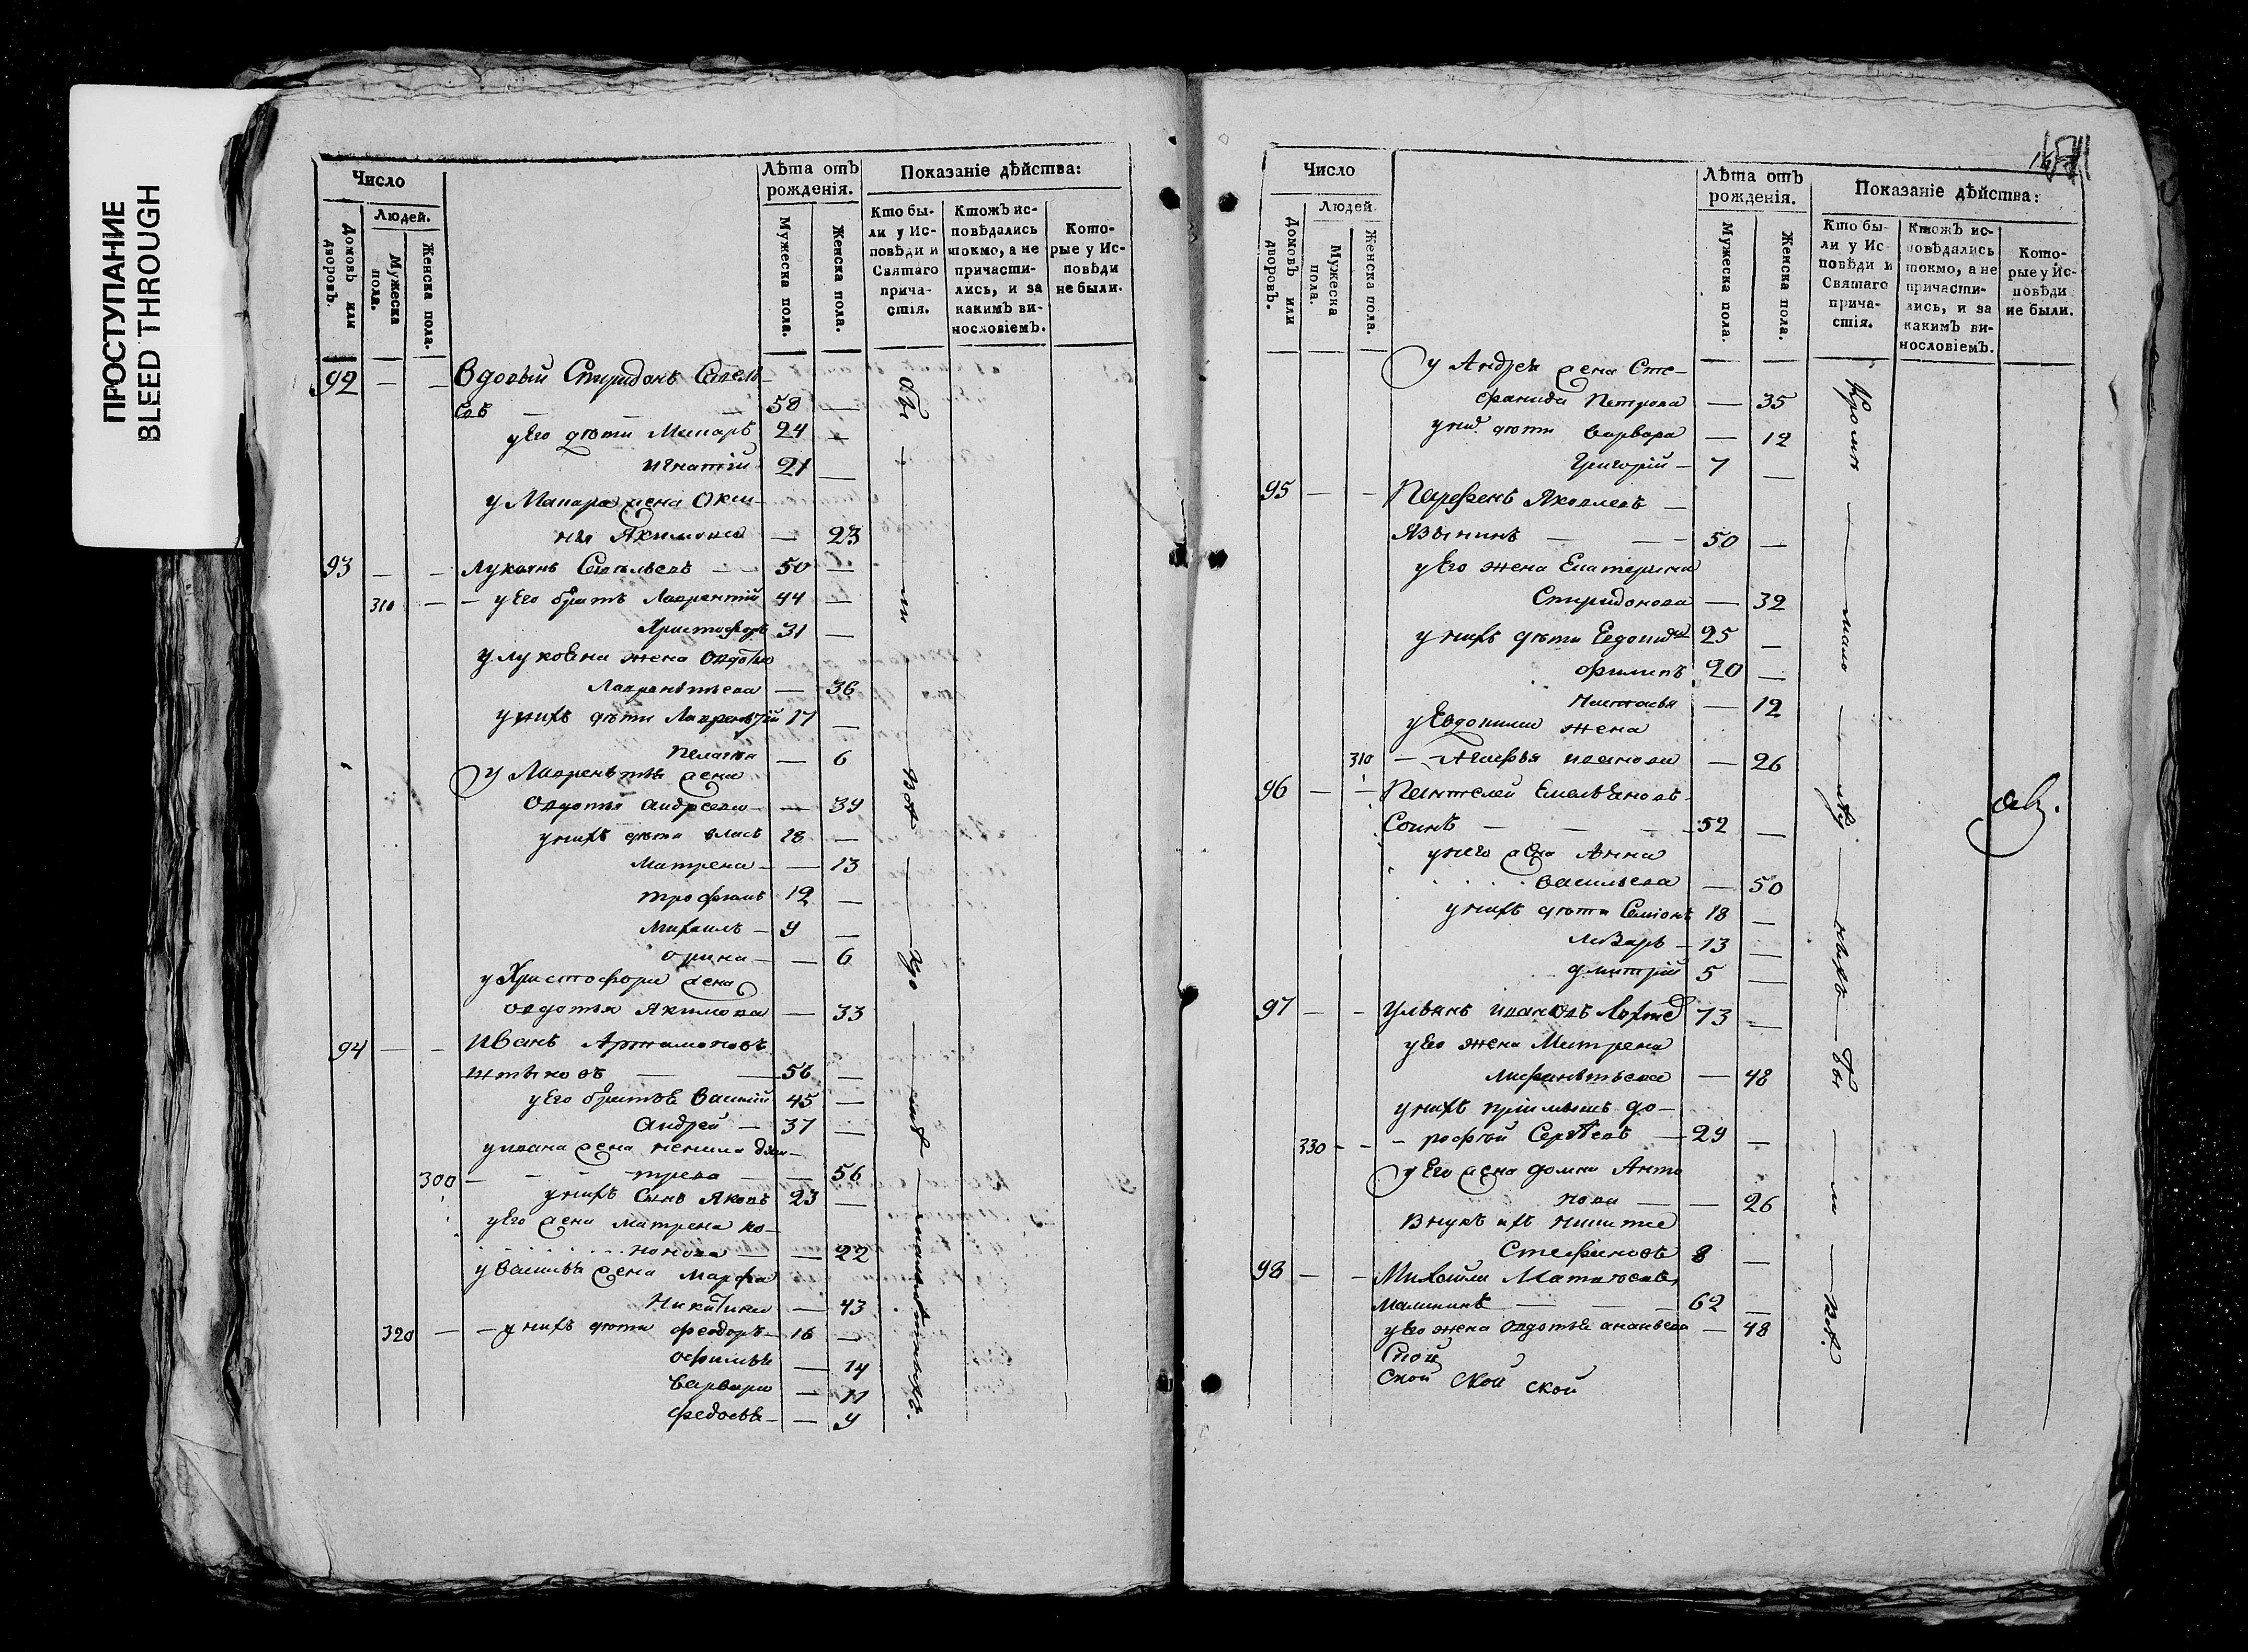 ПРОСТУПАНИЕ
BLEED THROUGH
Число
Людей.
Домовъ или дворовъ.
Мужеска пола.
Женска пола.
Лѣта отъ рожденія.
Мужеска пола.
Женска пола.
Показаніе дѣйства:
Кто бы-
ли у Ис-
повѣди и
Святаго
прича-
стія.
Ктожъ ис-
повѣдались
токмо, а не
причасти-
лись, и за
какимъ ви-
нословіемъ.
Кото-
рые у Ис-
повѣди
не были.
92 — — Вдовый Спиридонъ Савель
евъ — — — 58 —
у Его дѣти Макаръ 24 —
игнатій 21 —
у Макара жена Окси-
нія Якимова — 23
93 — — Лукіянъ Савельевъ — 50 —
310 — — у Его братъ Лаврентій 44 —
Христофоръ 31 —
у лукьяна жена Овдотья
Лаврентьева — 36
у нихъ дѣти Лаврентій 17 —
Пелагея — 6
у Лаврентья жена
Овдотья андреева — 39
у нихъ дѣти власъ 18 —
Матрена — 13
трофимъ 12 —
Михаилъ — 9 —
орина — 6
у Христофора жена
Овдотья Якимова — 33
94 — — Иванъ Артамоновъ
— 56 —
у Его братья Василій 45 —
Андрей — 37 —
у ивана жена
300 — 56
у нихъ Сынъ Яковъ 23 —
у Его жена матрена
— 22
у Василья жена Марфа
Никитина — 43
320 — — у нихъ дѣти феодоръ — 16 —
офимья — 14
варвара — 11
федосья — 9
Обы — ли — вѣ — до
Число
Людей.
Домовъ или дворовъ.
Мужеска пола.
Женска пола.
Лѣта отъ рожденія.
Мужеска пола.
Женска пола.
Показаніе дѣйства:
Кто бы-
ли у Ис-
повѣди и
Святаго
прича-
стія.
Ктожъ ис-
повѣдались
токмо, а не
причасти-
лись, и за
какимъ ви-
нословіемъ.
Кото-
рые у Ис-
повѣди
не были.
у Андрея жена Сте-
фанида Петрова — 35
у них дѣти варвара — 12
Григорій — 7 —
95 — — Парфенъ Яковлевъ —
Язынинъ — — 50 —
у Его жена Екатерина
Спиридонова — 32
у нихъ дѣти Евдокимъ 25 —
филипъ 20 —
Настасья — 12
у Евдокима жена
310 — Агафья иванова — 26
96 — — Пантелей Емельяновъ
Соинъ — — — 52 —
у него жена Анна
васильева — 50
у нихъ дѣти Семіонъ 18 —
Назаръ — 13 —
дмитрій 5 —
97 — — Ульянъ ивановъ 73 —
у Его жена Матрена
— 48
у нихъ пріимышъ до-
330 — — рофей Сергѣевъ — 29 —
у Его жена домна Анто
нова — — 26
внукъ ихъ никита
Стефановъ 8 —
98 — — Михайла Матвѣевъ
Малининъ — — — 62 —
у его жена овдотья ананьева — 48
Ской
Ской Ской ской
Кромѣ — мало — лѣт — нихъ — бы — ли — всѣ